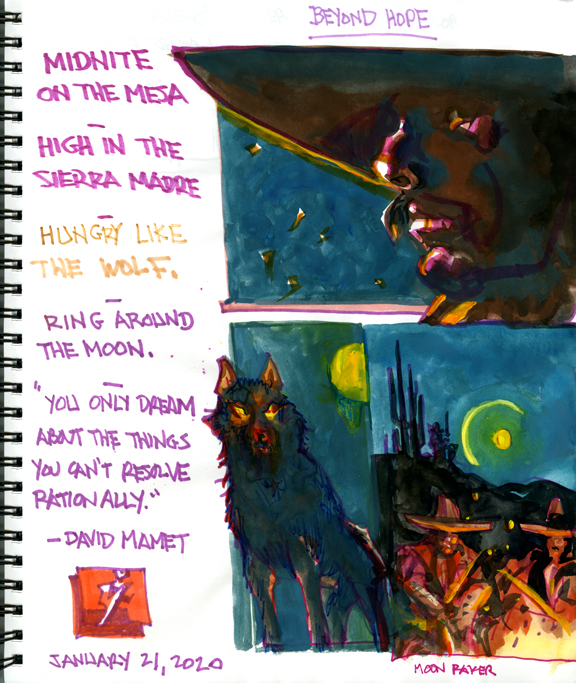 BEYOND HOPE
MIDNITE
ON THE MESA
HIGH IN THE
SIERRA MADRE
HUNGRY LIKE
THE WOLF.
RING AROUND
THE MOON.
"YOU ONLY DREAM
ABOUT THE THINGS
YOU CAN'T RESOLVE
RATIONALLY."
—DAVID MAMET
JANUARY 21, 2020
MOON RAKER